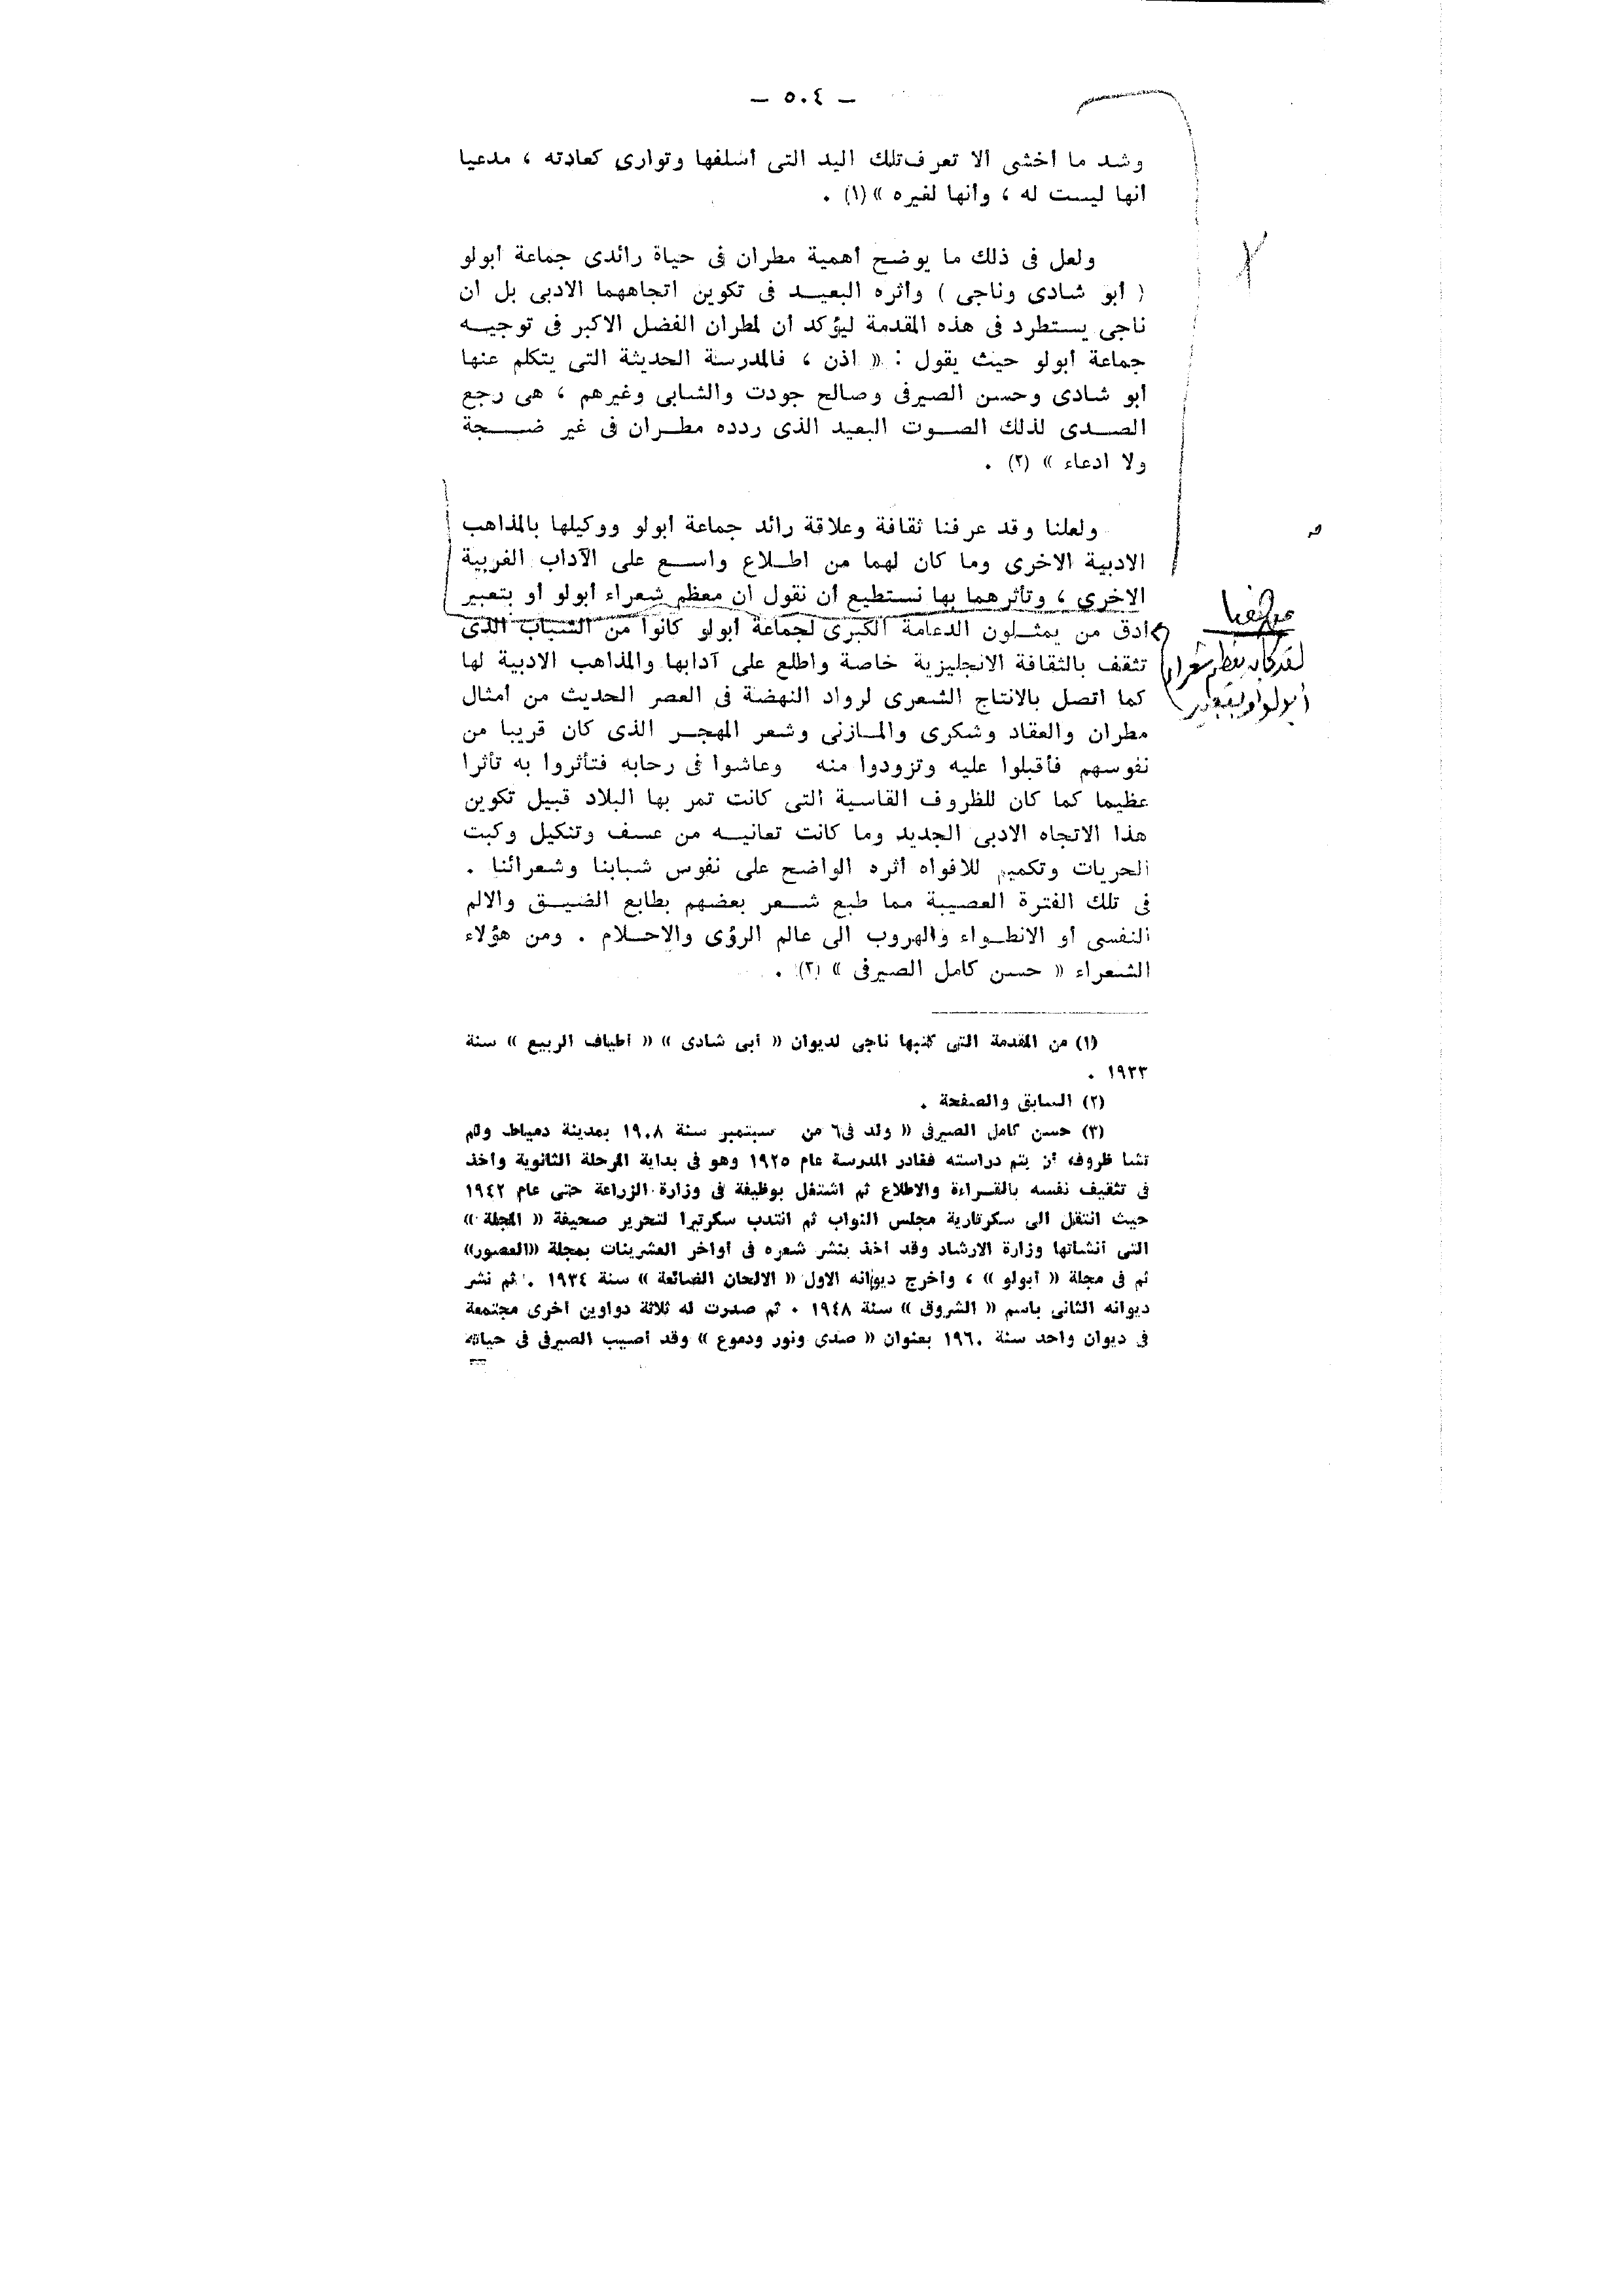 — ٥٠٤ —
وشد ما أخشى الا تعرف تلك اليد التى أسلفها وتوارى كعادته ، مدعيا
أنها ليست له ، وأنها لغيره » (١) .
ولعل فى ذلك ما يوضح أهمية مطران فى حياة رائدى جماعة أبولو
( أبو شادى وناجى ) وأثره البعيـد فى تكوين اتجاههما الادبى بل ان
ناجى يستطرد فى هذه المقدمة ليؤكد أن لمطران الفضل الاكبر فى توجيـه
جماعة أبولو حيث يقول : « اذن ، فالمدرسة الحديثة التى يتكلم عنها
أبو شادى وحسن الصيرفى وصالح جودت والشابى وغيرهم ، هى رجع
الصـدى لذلك الصـوت البعيد الذى ردده مطـران فى غير ضـجة
ولا ادعاء » (٢) .
ولعلنا وقد عرفنا ثقافة وعلاقة رائد جماعة أبولو ووكيلها بالمذاهب
الادبية الاخرى وما كان لهما من اطـلاع واسـع على الآداب الغربية
الاخرى ، وتأثرهما بها نستطيع أن نقول ان معظم شعراء أبولو أو بتعبير
أدق من يمثـلون الدعامة الكبرى لجماعة أبولو كانوا من الشباب الذى
لقد كان معظم شعراء
تثقف بالثقافة الانجليزية خاصة واطلع على آدابها والمذاهب الادبية لها
أبولو أو بتعبير
كما اتصل بالانتاج الشعرى لرواد النهضة فى العصر الحديث من أمثال
مطران والعقاد وشكرى والمـازنى وشعر المهجـر الذى كان قريبا من
نفوسهم فأقبلوا عليه وتزودوا منه وعاشوا فى رحابه فتأثروا به تأثرا
عظيما كما كان للظروف القاسية التى كانت تمر بها البلاد قبيل تكوين
هذا الاتجاه الادبى الجديد وما كانت تعانيـه من عسف وتنكيل وكبت
الحريات وتكميم للافواه أثره الواضح على نفوس شبابنا وشعرائنا .
فى تلك الفترة العصيبة مما طبع شـعر بعضهم بطابع الضيـق والالم
النفسى أو الانطـواء والهروب الى عالم الرؤى والاحـلام . ومن هؤلاء
الشعراء « حسن كامل الصيرفى » (٣) .
(١) من المقدمة التى كتبها ناجى لديوان « أبى شادى » « أطياف الربيع » سنة
١٩٣٣ .
(٢) السابق والصفحة .
(٣) حسن كامل الصيرفى « ولد فى ٦ من سبتمبر سنة ١٩٠٨ بمدينة دمياط ولم
تشأ ظروفه أن يتم دراسته فغادر المدرسة عام ١٩٢٥ وهو فى بداية المرحلة الثانوية وأخذ
فى تثقيف نفسه بالقـراءة والاطلاع ثم اشتغل بوظيفة فى وزارة الزراعة حتى عام ١٩٤٢
حيث انتقل الى سكرتارية مجلس النواب ثم انتدب سكرتيرا لتحرير صحيفة « المجلة »
التى أنشأتها وزارة الارشاد وقد أخذ ينشر شعره فى أواخر العشرينات بمجلة «العصور»
ثم فى مجلة « أبولو » ، وأخرج ديوانه الاول « الالحان الضائعة » سنة ١٩٣٤ . ثم نشر
ديوانه الثانى باسم « الشروق » سنة ١٩٤٨ . ثم صدرت له ثلاثة دواوين أخرى مجتمعة
فى ديوان واحد سنة ١٩٦٠ بعنوان « صدى ونور ودموع » وقد أصيب الصيرفى فى حياته